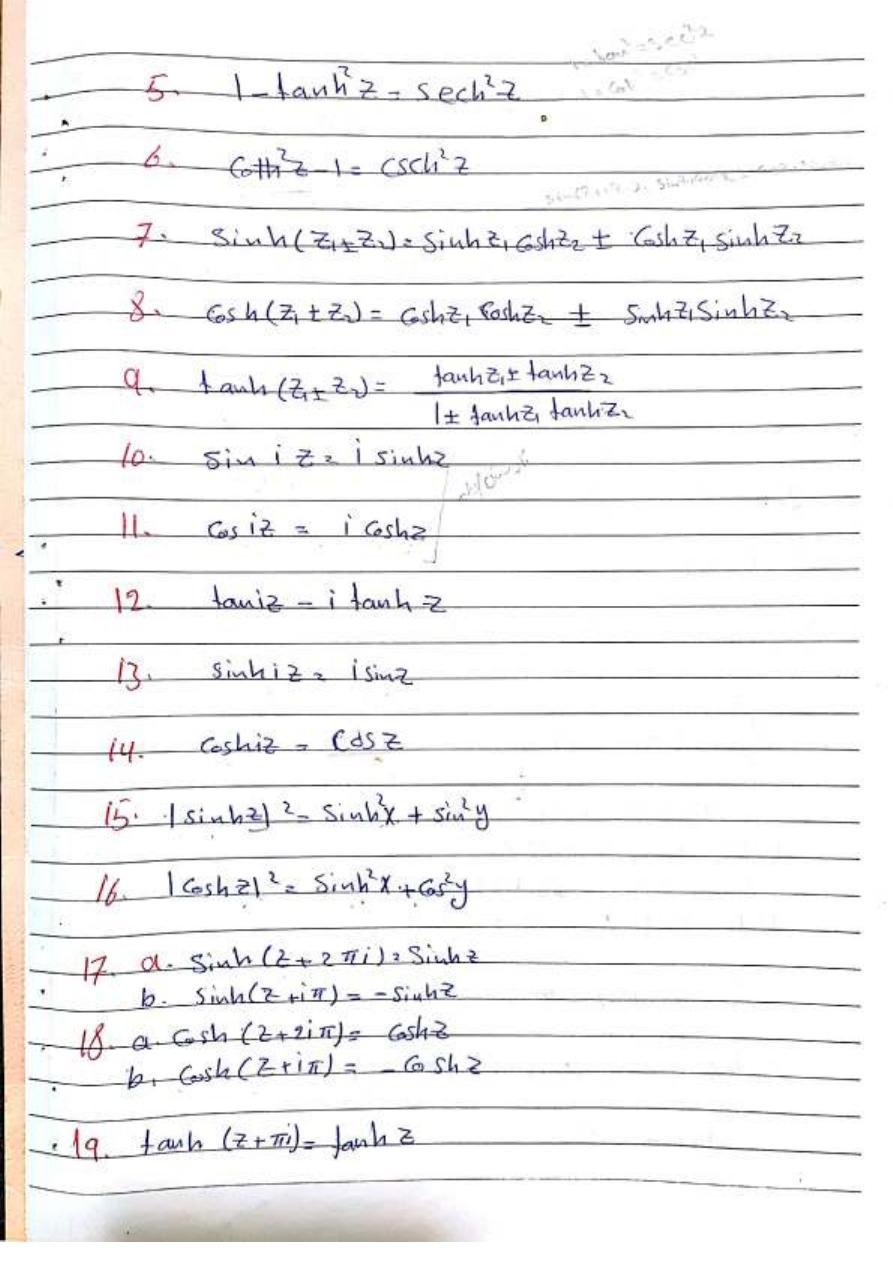 5. 1 - tanh²z = sech²z
6. Coth²z - 1 = csch²z
7. Sinh(z₁ ± z₂) = sinh z₁ cosh z₂ ± cosh z₁ sinh z₂
8. cosh(z₁ ± z₂) = cosh z₁ cosh z₂ ± sinh z₁ sinh z₂
9. tanh(z₁ ± z₂) = tanh z₁ ± tanh z₂ / 1 ± tanh z₁ tanh z₂
10. sin i z = i sinh z
11. cos iz = i cosh z
12. tan iz = i tanh z
13. sinh i z = i sin z
14. cosh iz = cos z
15. |sinh z|² = sinh²x + sin²y
16. |cosh z|² = sinh²x + cos²y
17. a. sinh(z + 2πi) = sinh z
b. sinh(z + iπ) = - sinh z
18. a. cosh(z + 2iπ) = cosh z
b. cosh(z + iπ) = - cosh z
19. tanh(z + πi) = tanh z